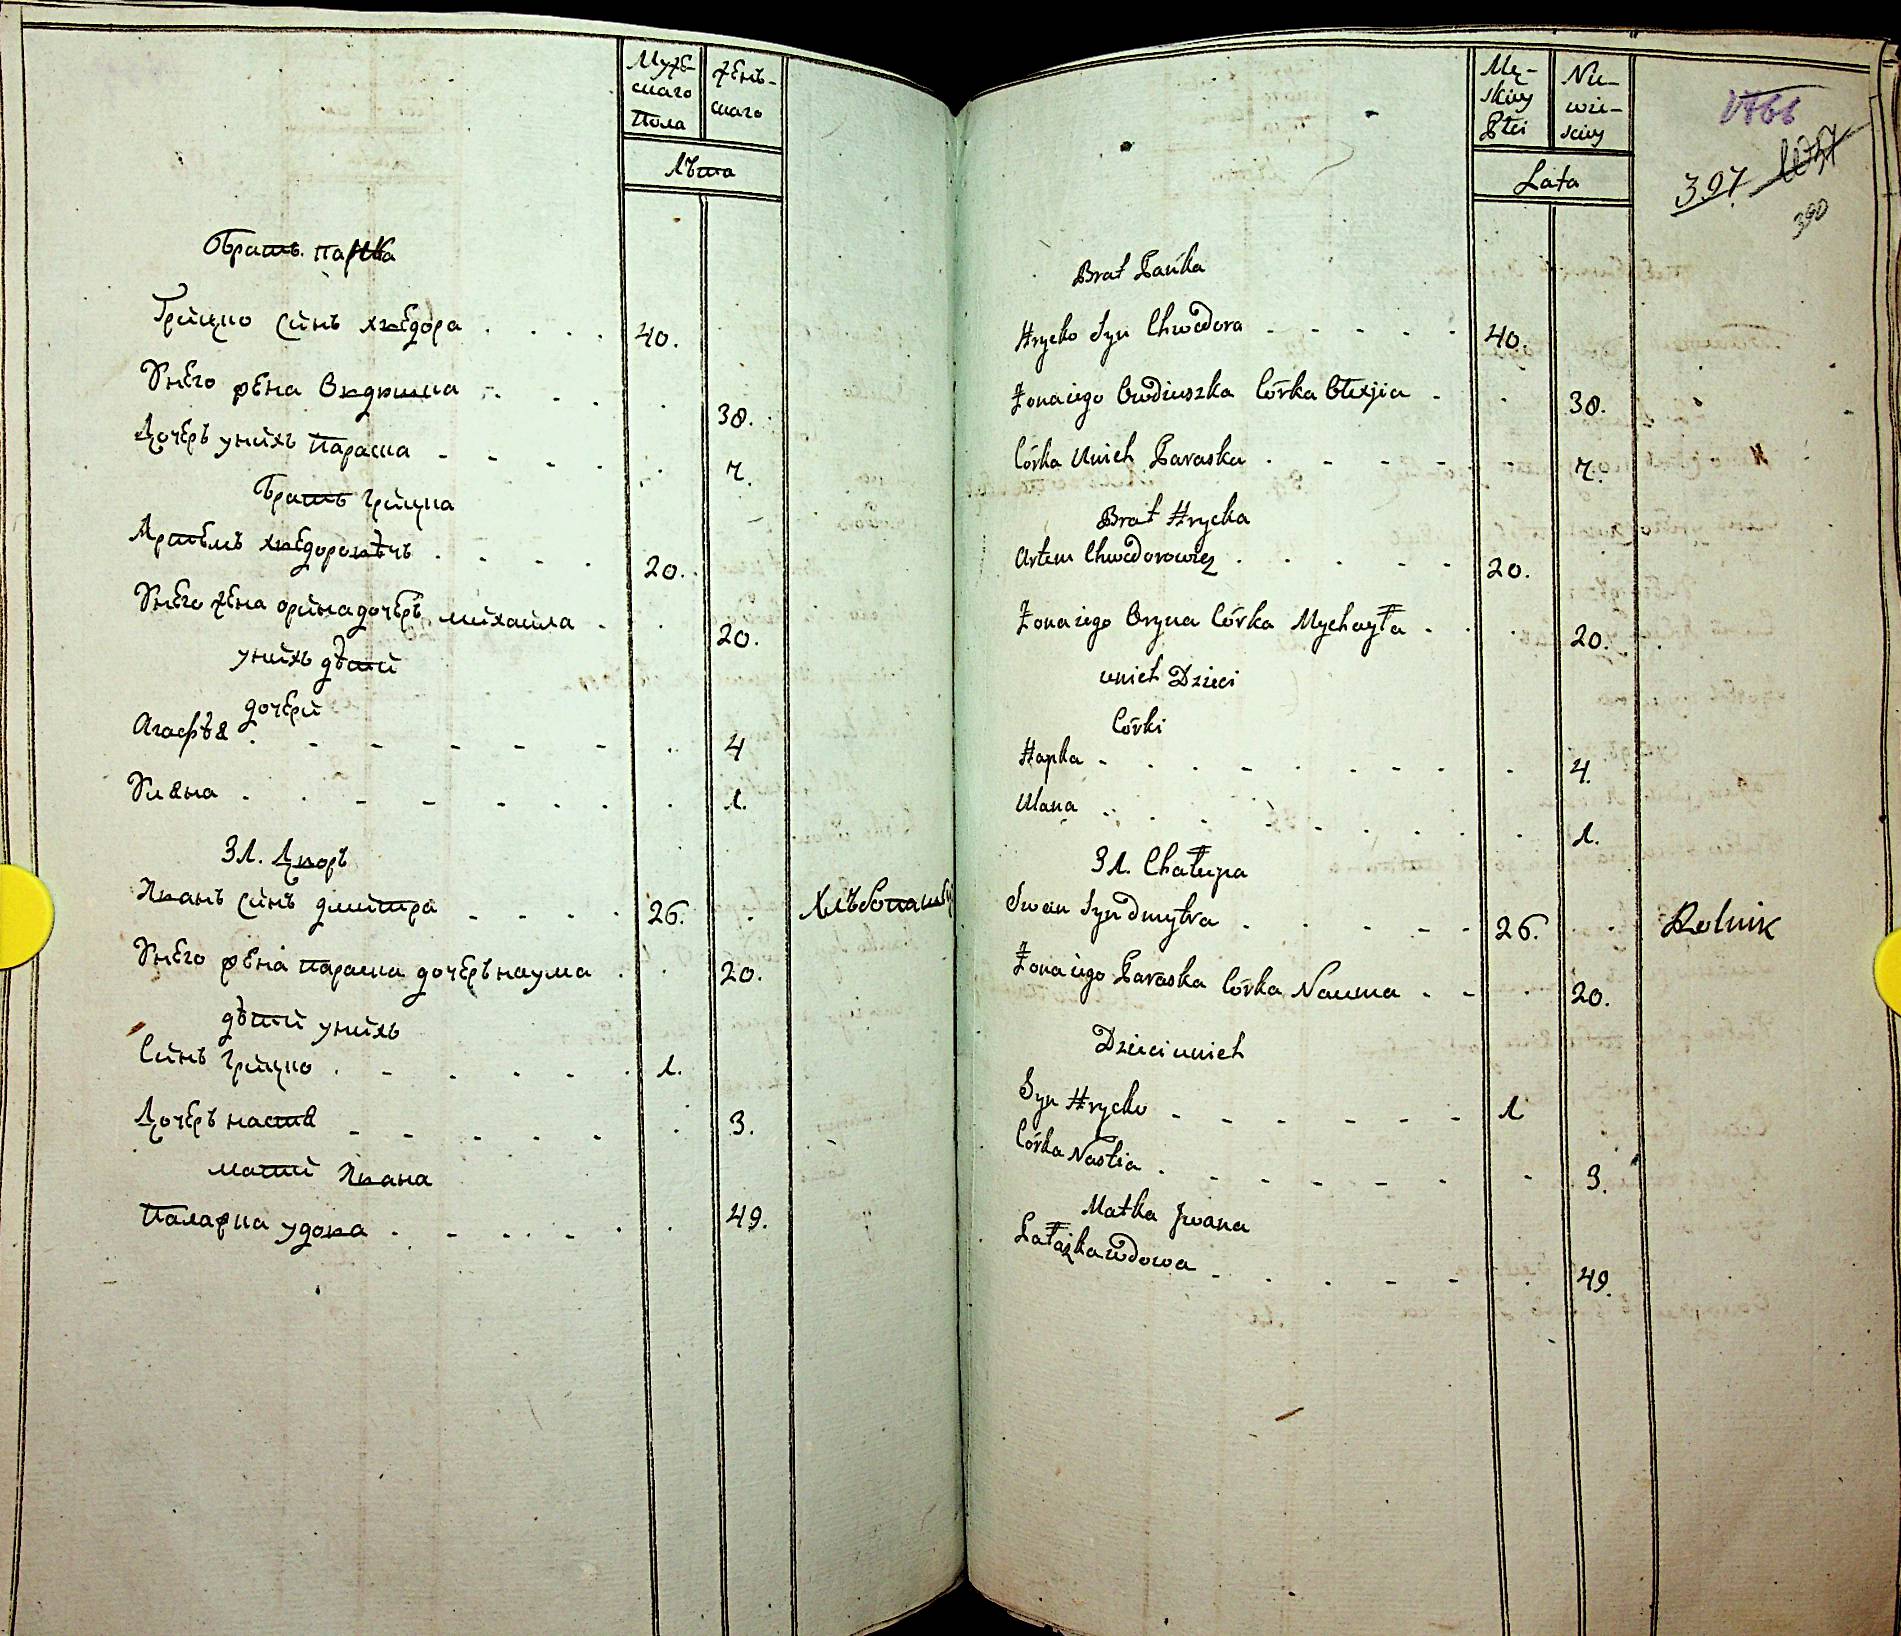 Муже-
скаго
Пола
жень-
скаго
Лѣта
Братъ Парка
Грицко синъ хведора 40.
Унего жена Овдюшка 30.
Дочеръ унихъ Параска 7.
Братъ Грицка
Артемъ хведоровѣчъ 20.
Унего жена орина дочеръ михайла 20.
унихъ дѣтй
дочери
Агафѣя 4
Уляна 1.
31. Дворъ
Иванъ синъ дмитра 26. Хлѣбопашецъ
Унего жена параска дочеръ наума 20.
дѣтй унихъ
Синъ Грицко 1.
Дочеръ настя 3.
матй Ивана
Палажка удова 49.
Mę-
skiey
Płci
Nie-
wie-
sciey
Lata
1766
397
390
Brat Pańka
Hrycko Syn Chwedora 40.
Żona iego Owdiuszka Córka Olexjia 30.
Córka Unich Paraska 7.
Brat Hrycka
Artem Chwedorowicz 20.
Żona iego Oryna Córka Mychayła 20.
unich Dzieci
Córki
Hapka 4.
Ulana 1.
31. Chałupa
Iwan Syn Dmytra 26. Rolnik
Żona iego Paraska Córka Nauma 20.
Dzieci unich
Syn Hrycko 1
Córka Nastia 3.
Matka Jwana
Pałażka wdowa 49.